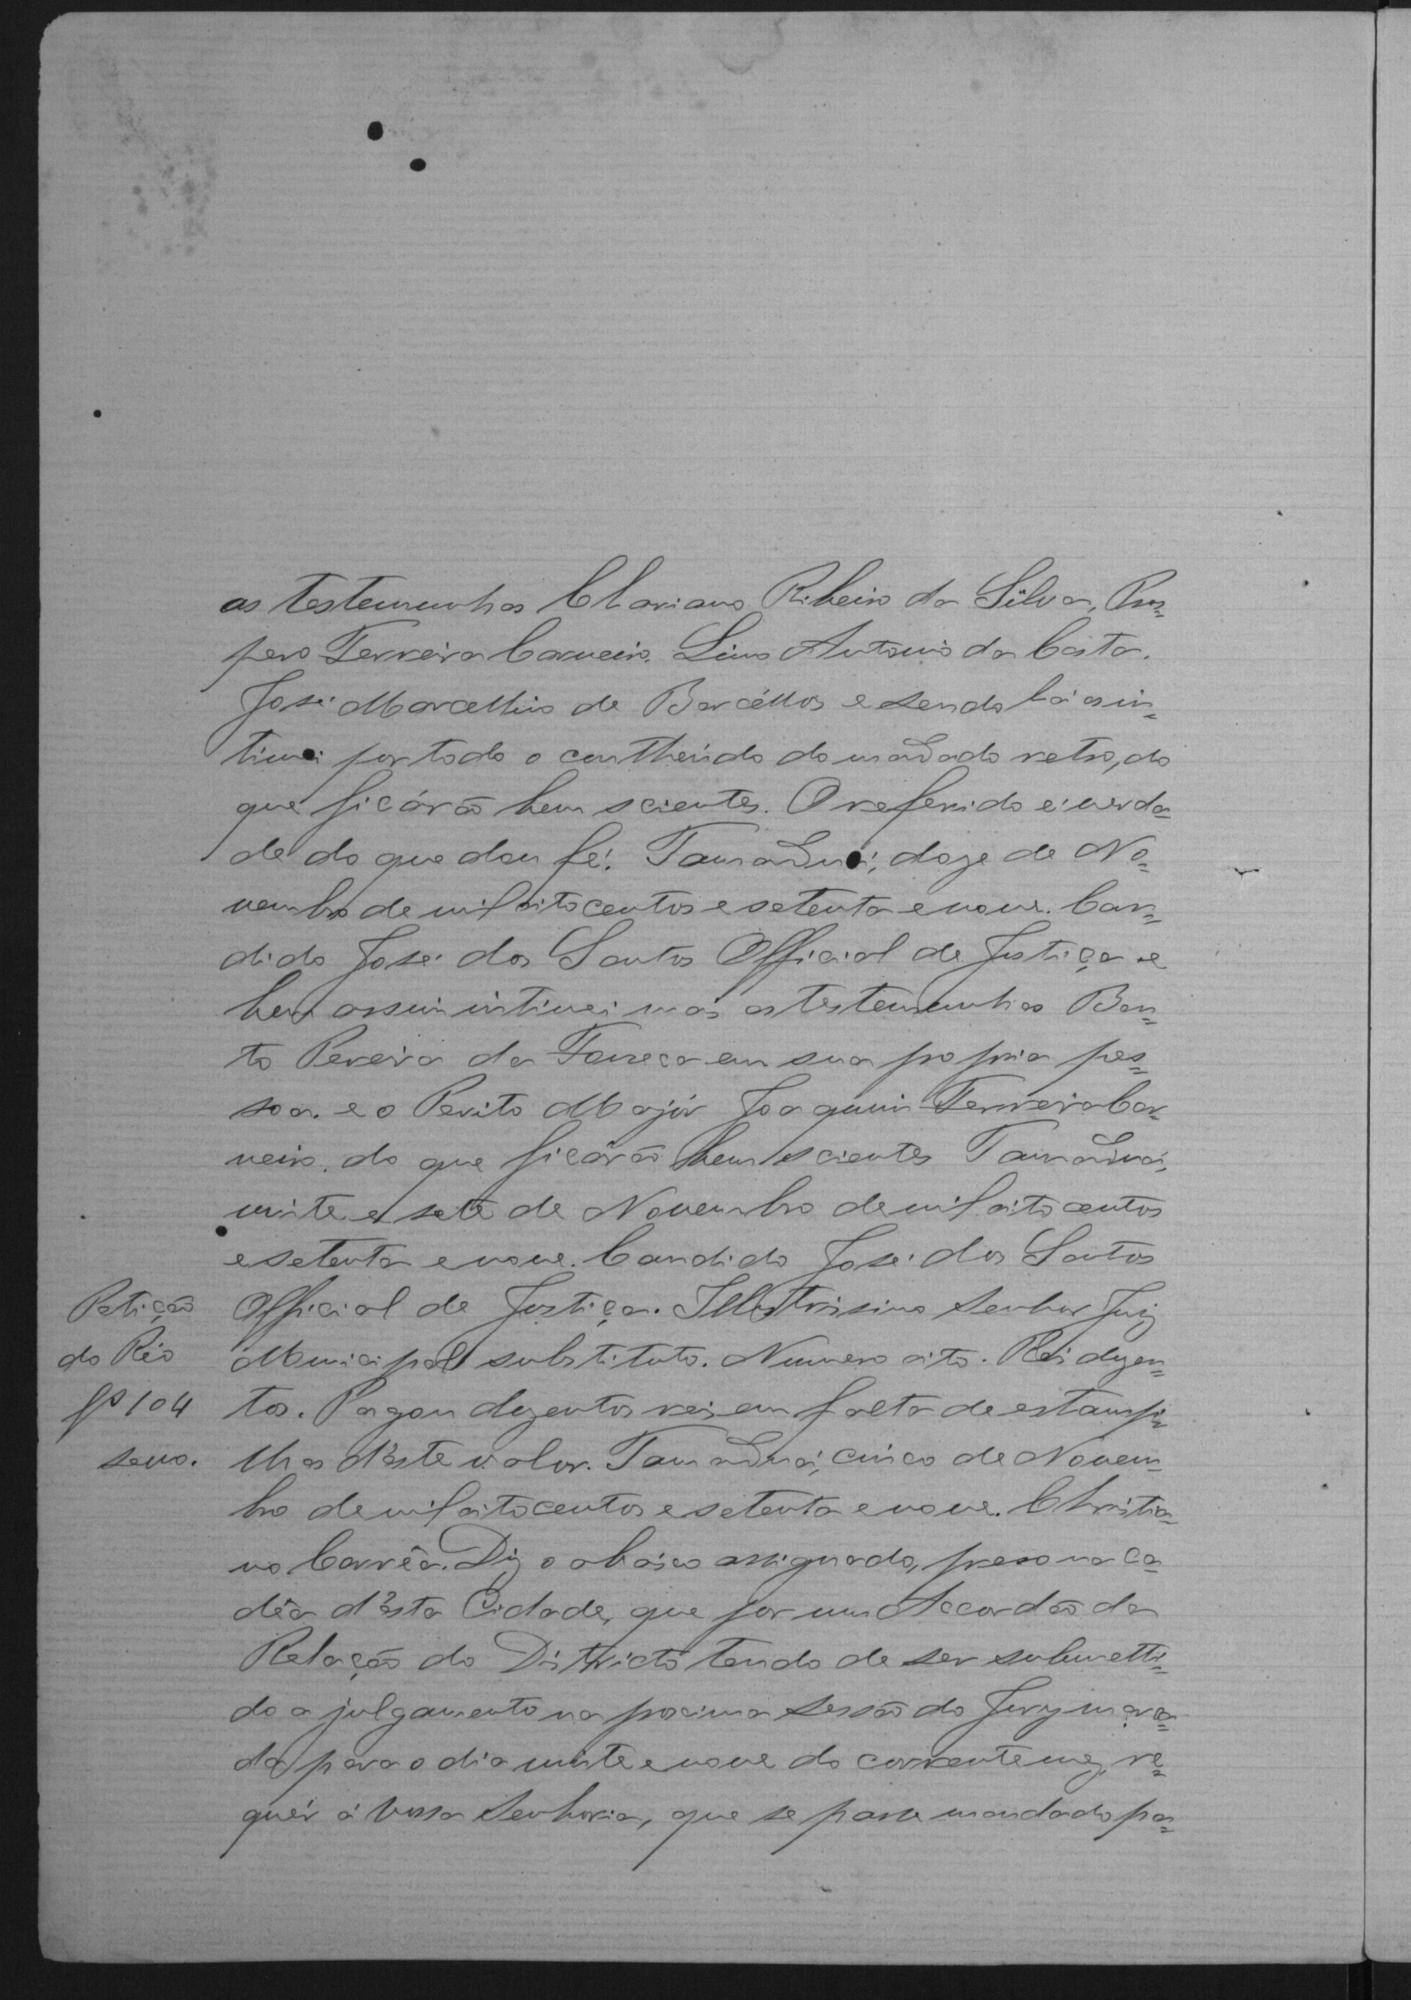 as testemunhas Mariano Ribeiro da Silva, Pros=
pero Ferreira Carneiro. Lino Antonio da Costa.
José Marcellino de Barcéllos e sendo lá as in=
timei por todo o contheúdo do mandado retro, do
que ficárão bem scientes. O referido é verda=
de do que dou fé. Tamanduá, doze de No=
vembro de mil oito centos e setenta e nove. Can=
dido José dos Santos Official de Justiça e
bem assim intimei mais as testemunhas Ben=
to Pereira da Fonseca em sua propria pes=
soa. e o Perito Majór Joaquim Ferreira Car=
neiro. do que ficárão bem scientes Tamanduá,
vinte e sete de Novembro de mil oito centos
e setenta e nove. Candido José dos Santos
Petição
do Réo
fs 104
Official de Justiça. Illustrissimo Senhor Juiz
Municipal substituto. Numero oito. Reis duzen=
tos. Pagou duzentos reis em falta de estampi=
lhas d'este valor. Tamanduá, cinco de Novem=
bro de mil oito centos e setenta e nove. Christia=
no Corrêa. Diz o abaixo assignado, preso na ca=
dêa d'esta Cidade, que por um Accordão da
Relação do Districto tendo de ser submetti=
do a julgamento na proxima sessão do Jury marca=
da para o dia vinte e nove do corrente mez, re=
quér á Vossa Senhoria, que se passe mandado pa=